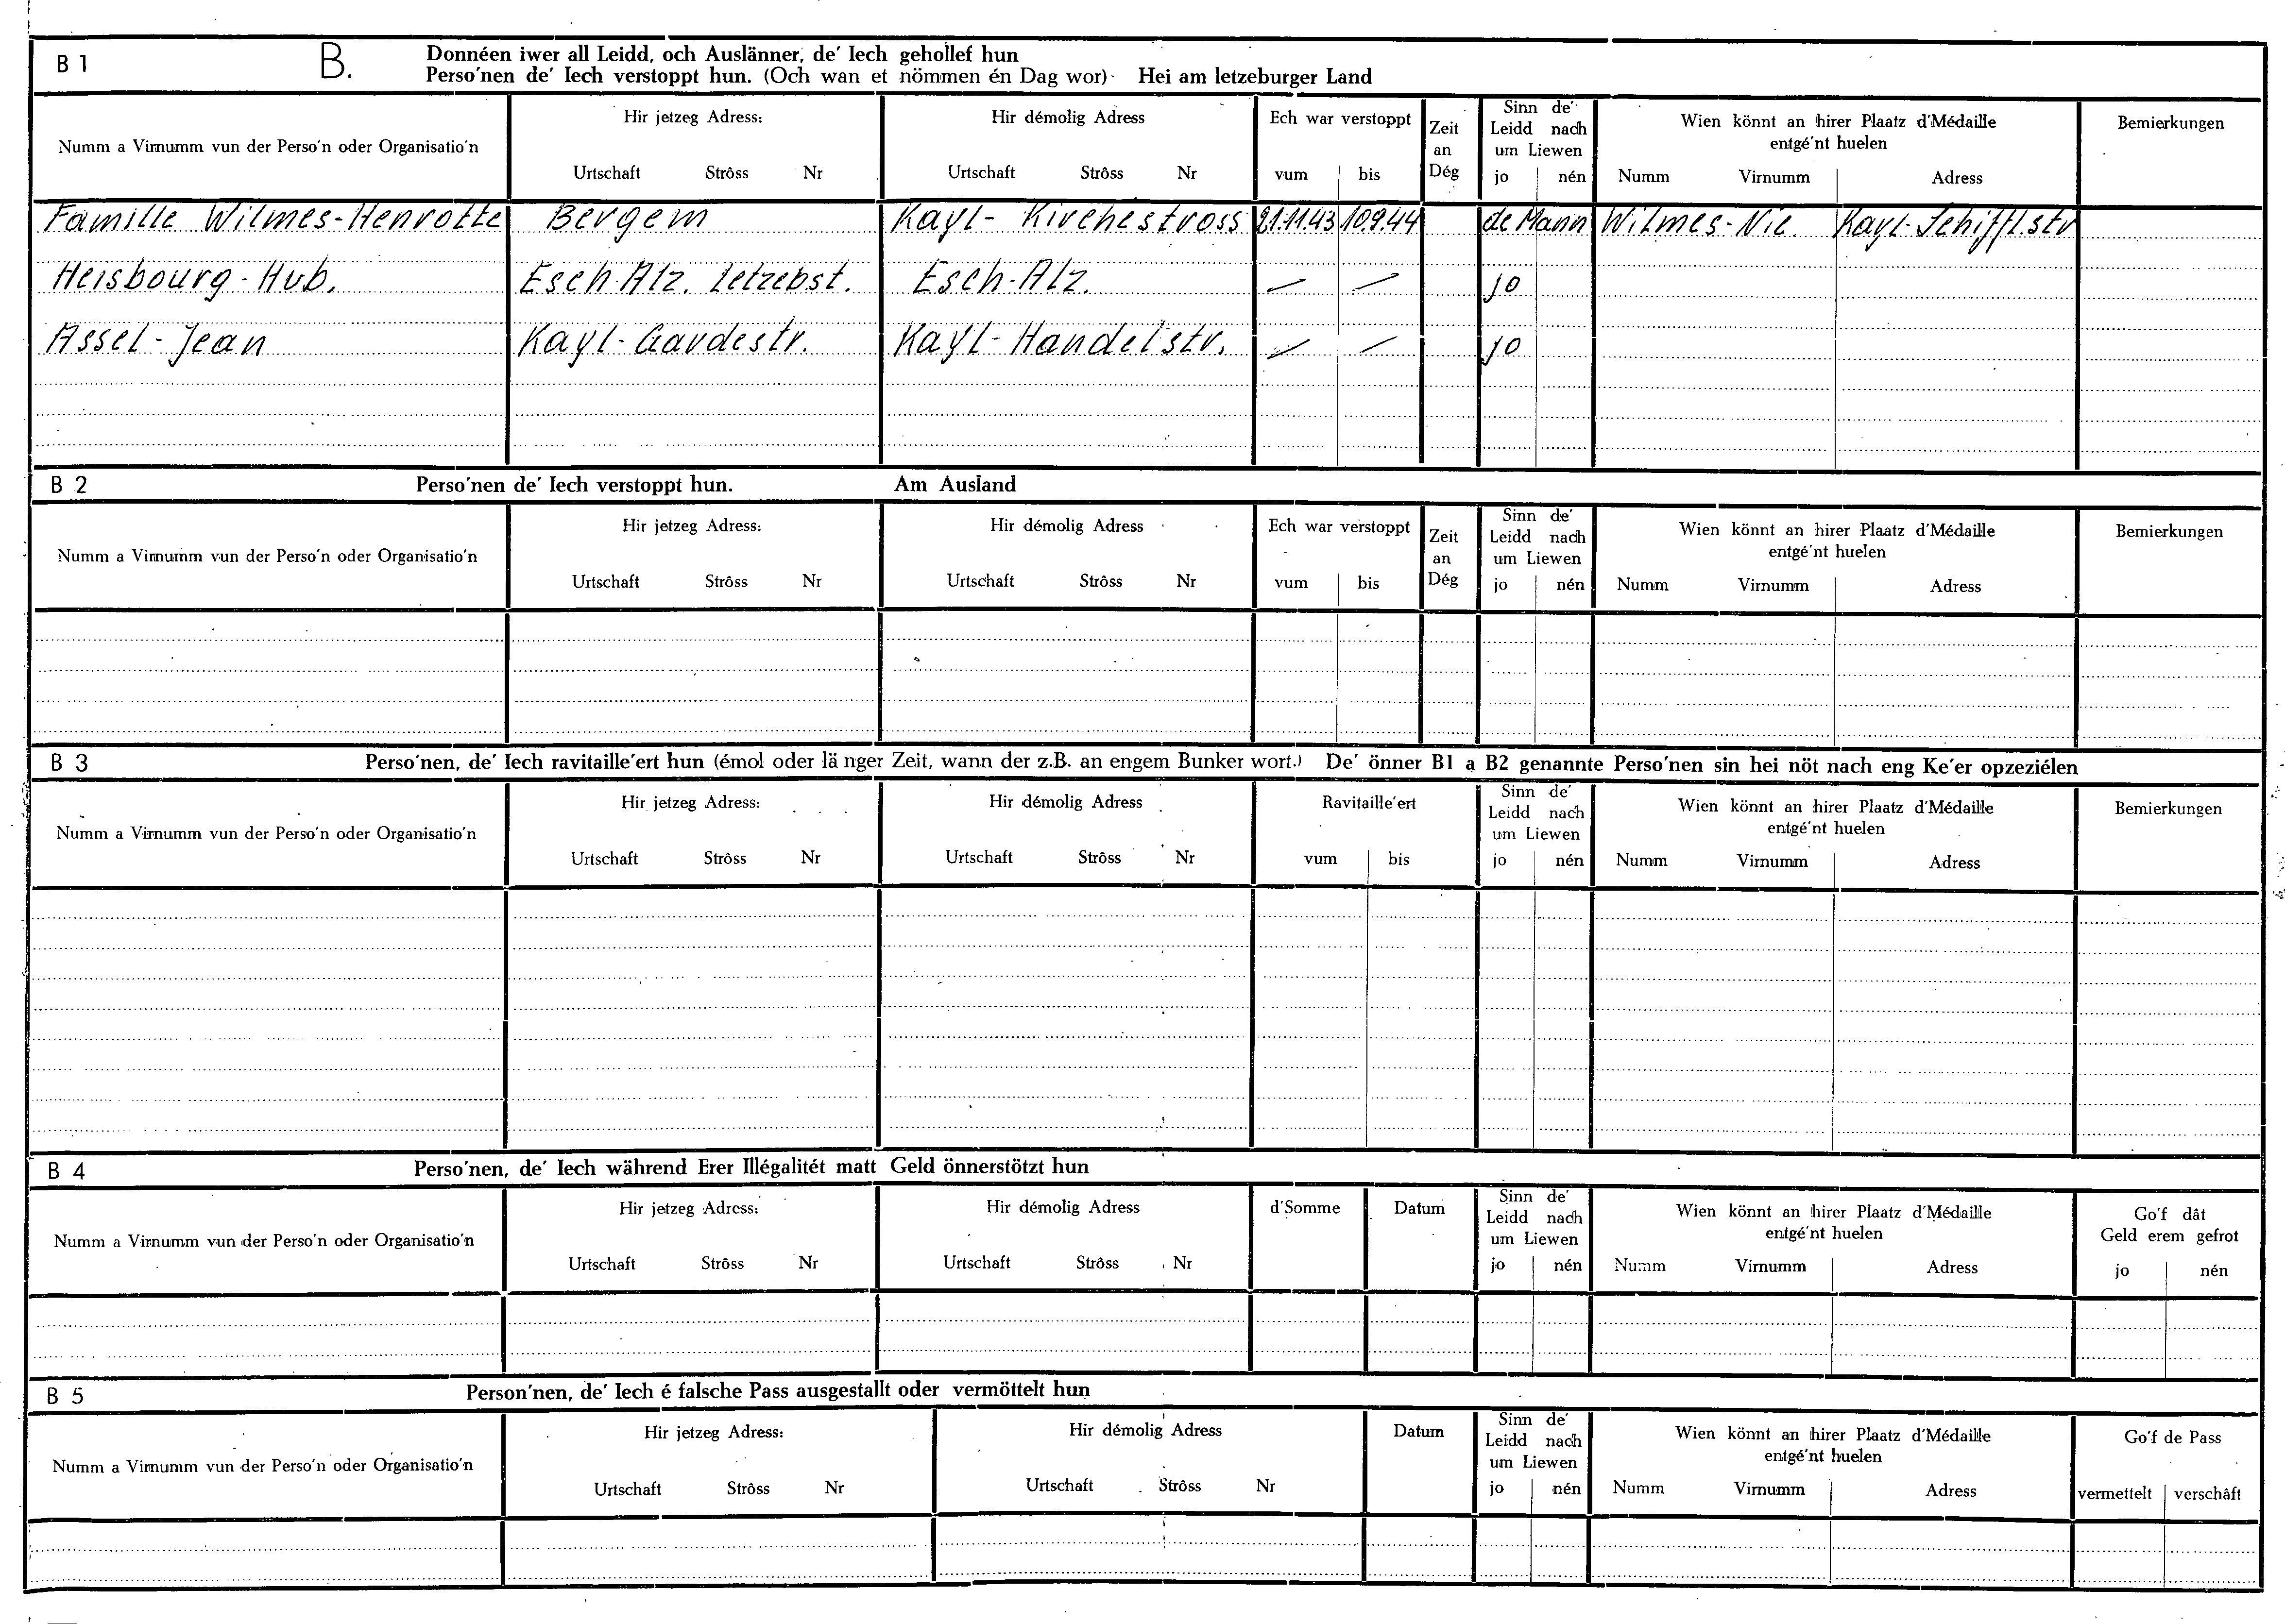 B 1 B. Donnéen iwer all Leidd, och Auslänner, de' Iech gehollef hun
Perso'nen de' Iech verstoppt hun. (Och wan et nömmen én Dag wor) Hei am letzeburger Land
Numm a Virnumm vun der Perso'n oder Organisatio'n Hir jetzeg Adress: Hir démolig Adress Ech war verstoppt Zeit an Dég Sinn de' Leidd nach um Liewen Wien könnt an hirer Plaatz d'Médaille entgé'nt huelen Bemierkungen
Urtschaft Strôss Nr Urtschaft Strôss Nr vum bis jo nén Numm Virnumm Adress
Famille Wilmes-Henrotte Bergem Kayl- Kirchestross 21.11.43 10.9.44 de Mann Wilmes-Nic. Kayl-Schiffl.str
Heisbourg-Hub. Esch-Alz. letzebst. Esch-Alz. — — jo
Assel-Jean Kayl-Gardestr. Kayl-Handelstr. — — jo
B 2 Perso'nen de' Iech verstoppt hun. Am Ausland
Numm a Virnumm vun der Perso'n oder Organisatio'n Hir jetzeg Adress: Hir démolig Adress Ech war verstoppt Zeit an Dég Sinn de' Leidd nach um Liewen Wien könnt an hirer Plaatz d'Médaille entgé'nt huelen Bemierkungen
Urtschaft Strôss Nr Urtschaft Strôss Nr vum bis jo nén Numm Virnumm Adress
B 3 Perso'nen, de' Iech ravitaille'ert hun (émol oder länger Zeit, wann der z.B. an engem Bunker wort.) De' önner B1 a B2 genannte Perso'nen sin hei nöt nach eng Ke'er opzeziélen
Numm a Virnumm vun der Perso'n oder Organisatio'n Hir jetzeg Adress: Hir démolig Adress Ravitaille'ert Sinn de' Leidd nach um Liewen Wien könnt an hirer Plaatz d'Médaille entgé'nt huelen Bemierkungen
Urtschaft Strôss Nr Urtschaft Strôss Nr vum bis jo nén Numm Virnumm Adress
B 4 Perso'nen, de' Iech während Erer Illégalitét matt Geld önnerstötzt hun
Numm a Virnumm vun der Perso'n oder Organisatio'n Hir jetzeg Adress: Hir démolig Adress d'Somme Datum Sinn de' Leidd nach um Liewen Wien könnt an hirer Plaatz d'Médaille entgé'nt huelen Go'f dât Geld erem gefrot
Urtschaft Strôss Nr Urtschaft Strôss Nr jo nén Numm Virnumm Adress jo nén
B 5 Person'nen, de' Iech é falsche Pass ausgestallt oder vermöttelt hun
Numm a Virnumm vun der Perso'n oder Organisatio'n Hir jetzeg Adress: Hir démolig Adress Datum Sinn de' Leidd nach um Liewen Wien könnt an hirer Plaatz d'Médaille entgé'nt huelen Go'f de Pass
Urtschaft Strôss Nr Urtschaft Strôss Nr jo nén Numm Virnumm Adress vermettelt verschâft